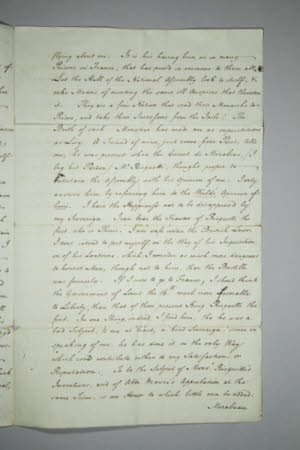 flying about me. It is his having been in so many
Prisons in France, that has proved so ominous to them all.
Let the Hall of the National Assembly look to itself &
take Means of averting the same ill Auspices that threaten
it. They are a fine Nation that send their Monarchs to
Prison, and take their Lawgivers from the Jails! The
Birth of such Monsters has made me as superstitious
as Livy. A Friend of mine, just come from Paris, tells
me, he was present when the Count de Mirabeau (I
beg his Pardon) Mr Riquetti, thought proper to
entertain the Assembly with his opinion of me. I only
answer him by referring to the World's Opinion of
him. I have the Happiness not to be disapproved by
my Sovereign. I can bear the Frowns of Riquetti the
first who is Theirs. I am safe under the British Laws.
I do not intend to put myself in the Way of his Inquisition
or of his Lanterne, which I consider as much more dangerous
to honest Men, though not to him, than the Bastille
was formerly. If I was to go to France, I should think
the Government of Louis the 16th much more favorable
to Liberty, than that of their present King Riquetti the
first. In one Thing indeed I find him, tho he was a
bad Subject, to me at least, a kind Sovereign: since in
speaking of me, he has done it in the only Way
which could contribute either to my Satisfaction or
Reputation: To be the Subject of Monsr Riquetti's
Invectives, and of Abbé Maury's Approbation at the
same Time, is an Honor to which little can be added.
Mirabeau